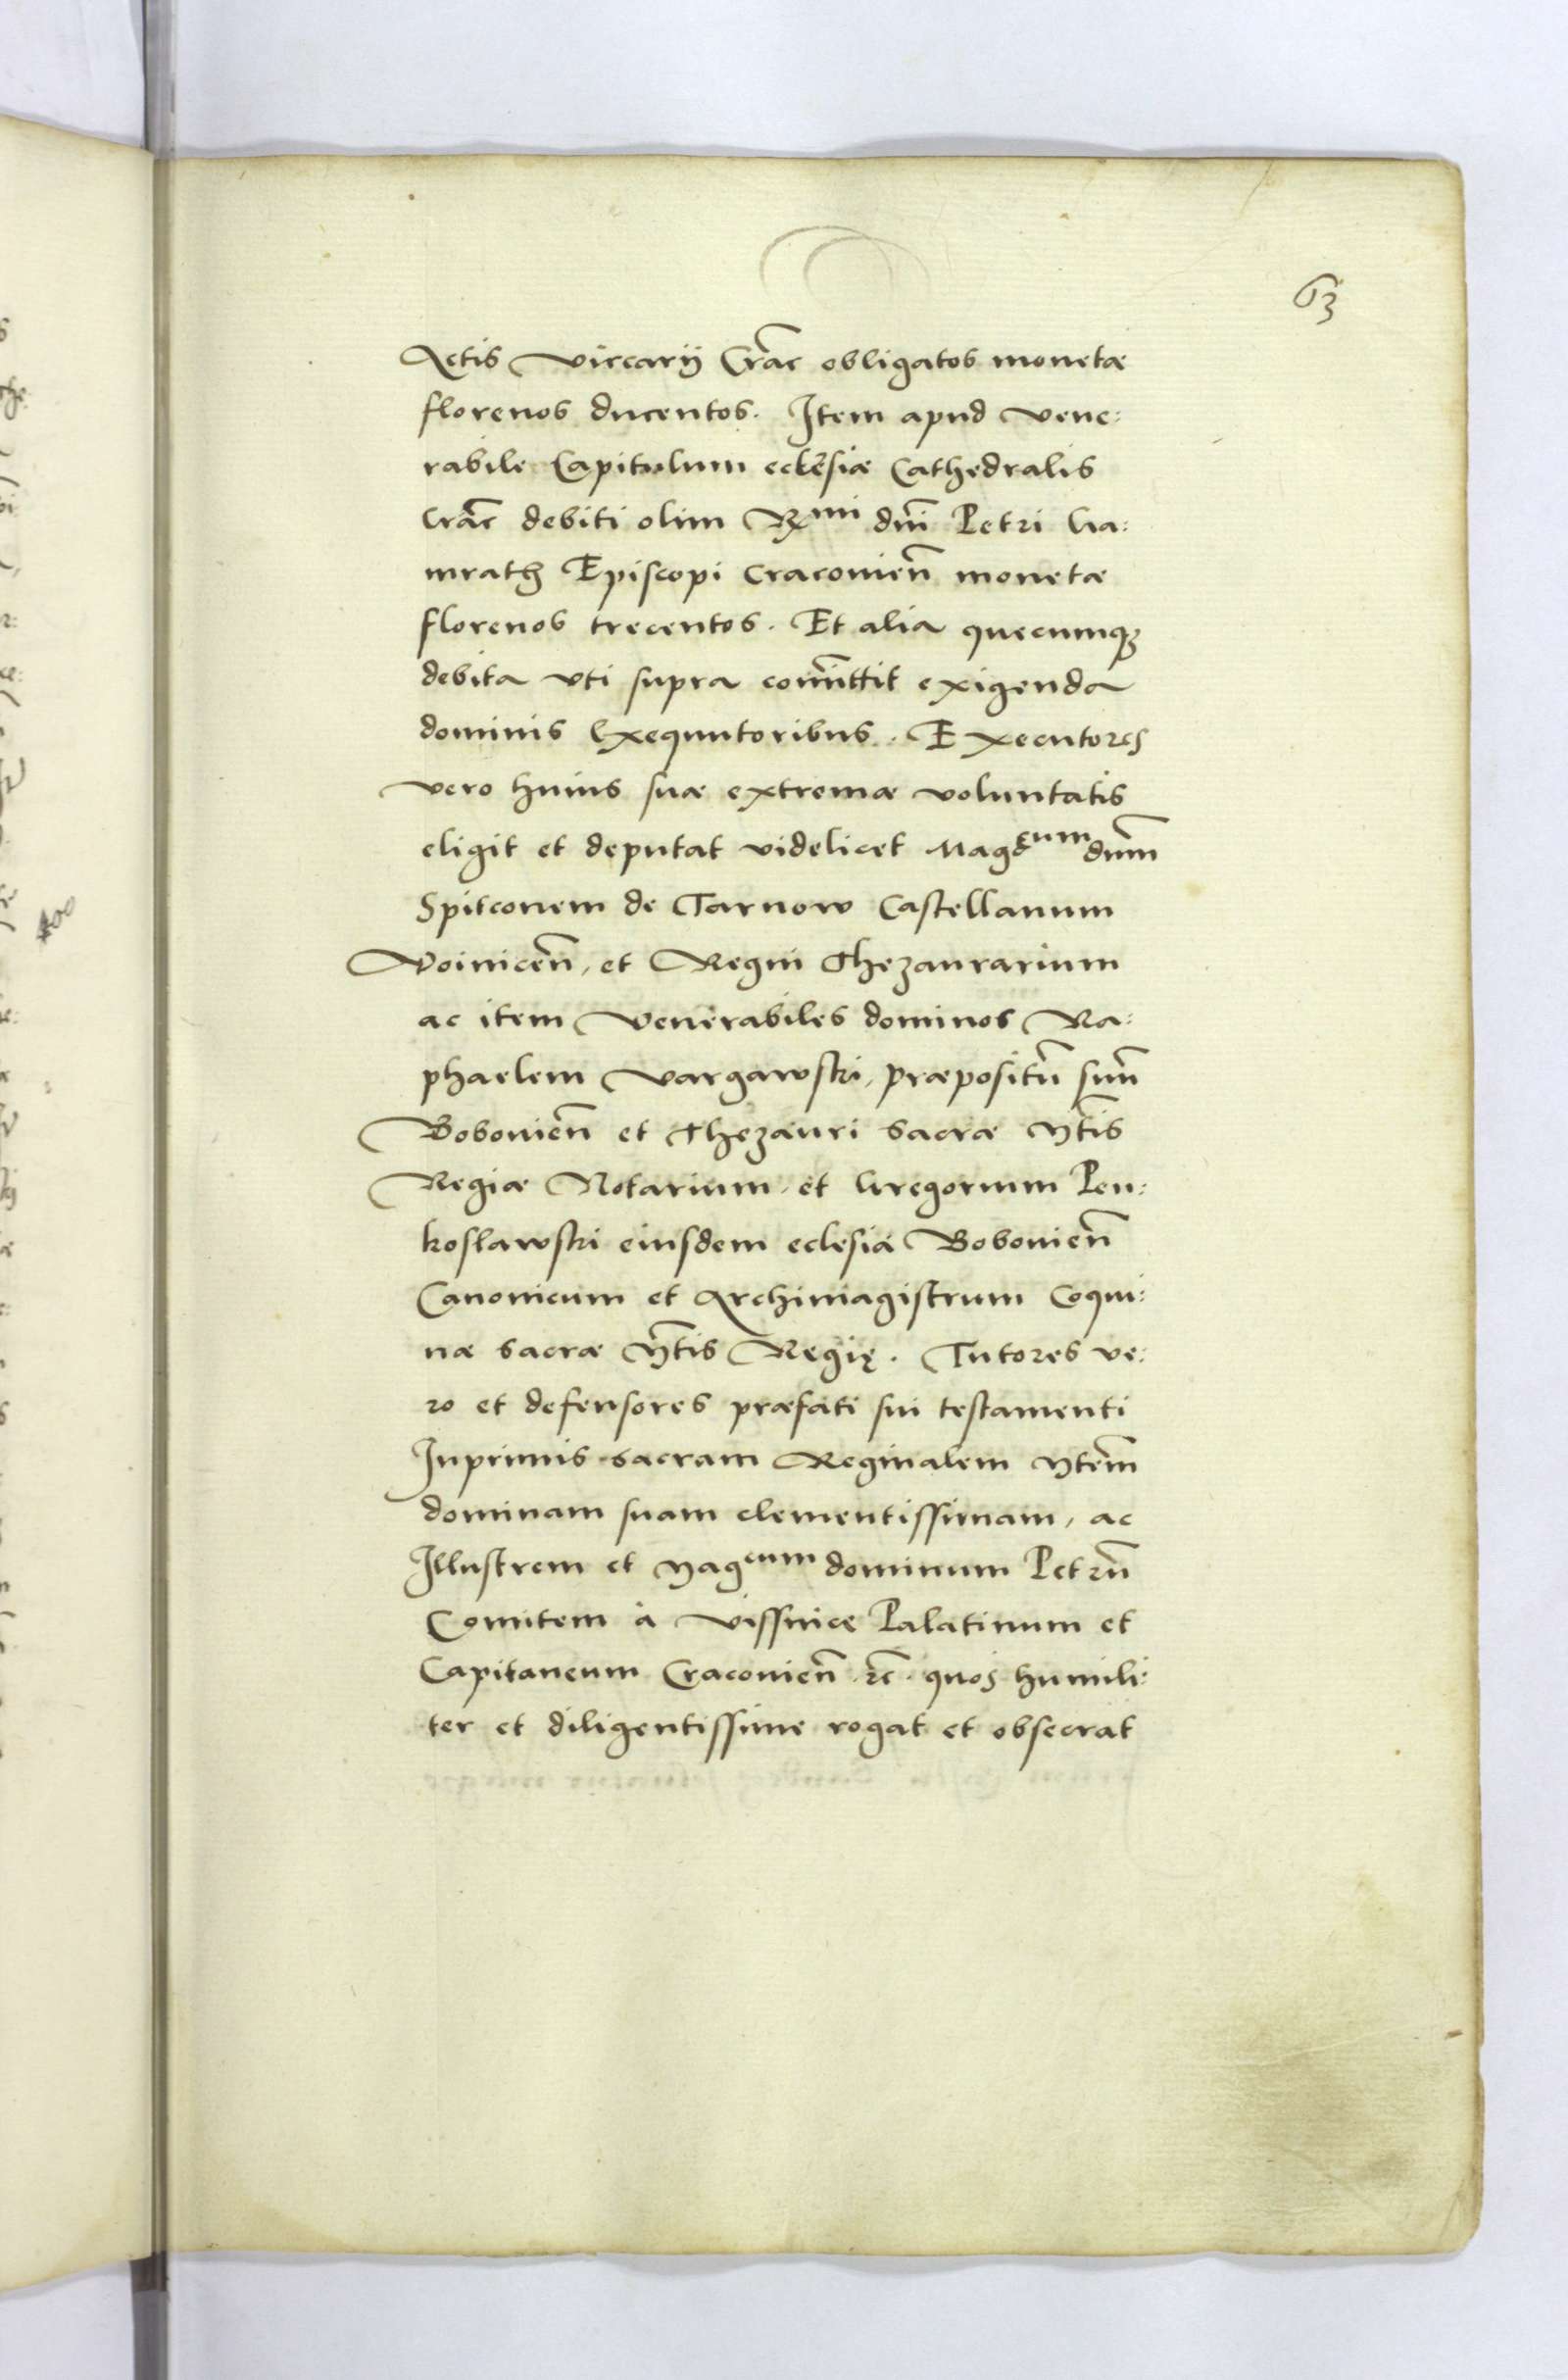 63
Actis Viccarij Crac̄ obligatos monetæ
florenos ducentos. Item apud Vene:
rabile Capitulum ecclesiæ Cathedralis
Crac̄ debiti olim Rmi dni Petri Ga:
mrath Episcopi Cracovien̄ monetæ
florenos trecentos. Et alia quecumq;
debita vti supra com̄ittit exigenda
dominis Exequutoribus. Executores
vero huius suæ extremæ voluntatis
eligit et deputat videlicet Magcum dnm
Spitconem de Tarnow Castellanum
Voinicen̄, et Regni Thezaurarium
ac item Venerabiles dominos Ra:
phaelem Vargawski, præpositū suū
Bobovien̄ et Thezauri sacræ Mtis
Regiæ Notarium, et Gregorium Pen:
koslawski eiusdem eclesiæ Bobovien̄
Canonicum et Archimagistrum Coqui:
næ sacræ Mtis Regię. Tutores ve:
ro et defensores præfati sui testamenti
Inprimis sacram Reginalem Mtem
dominam suam clementissimam, ac
Illustrem et Magcum dominum Petrū
Comitem à Vissnice Palatinum et
Capitaneum Cracovien̄ .rc̄. quos humili:
ter et diligentissime rogat et obsecrat
400